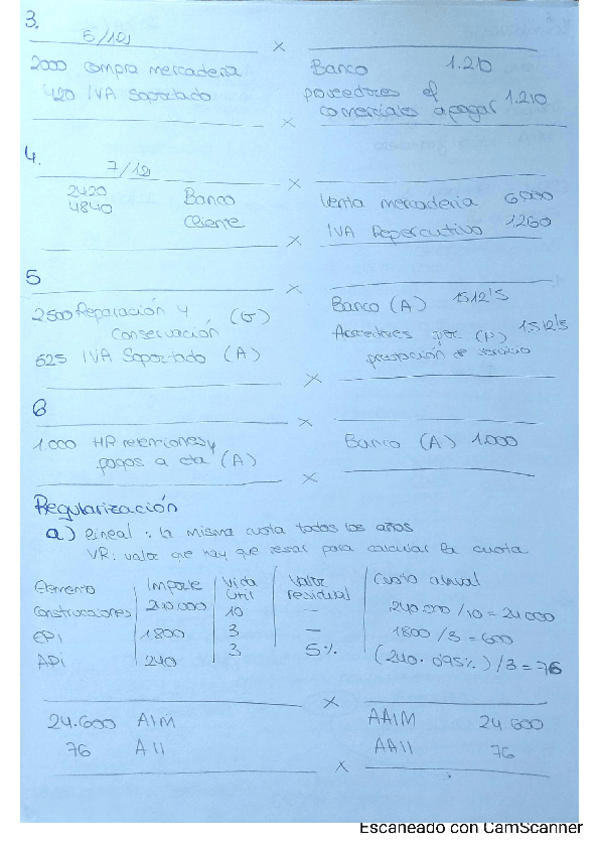 3.
5/12 x
2000 compra mercaderia Banco 1.210
420 IVA Soportado proveedores ef comerciales a pagar 1.210
x
4.
7/12 x
2420 Banco Venta mercaderia 6000
4840 Cliente IVA Repercutivo 1260
x
5
x
2500 Reparación y Conservación (G) Banco (A) 1512'5
625 IVA Soportado (A) Acreedores por (P) 1512'5
prestación de servicio
x
6
x
1.000 HP retenciones y pagos a cta (A) Banco (A) 1.000
x
Regularización
a) lineal : la misma cuota todos los años
VR: valor que hay que restar para calcular la cuota
Elemento Importe Vida útil Valor residual Cuota anual
Construcciones 240.000 10 — 240.000/10 = 24000
EPI 1800 3 — 1800/3 = 600
API 240 3 5% (240 · 0'95%)/3 = 76
x
24.600 AIM AAIM 24 600
76 AII AAII 76
x
Escaneado con CamScanner